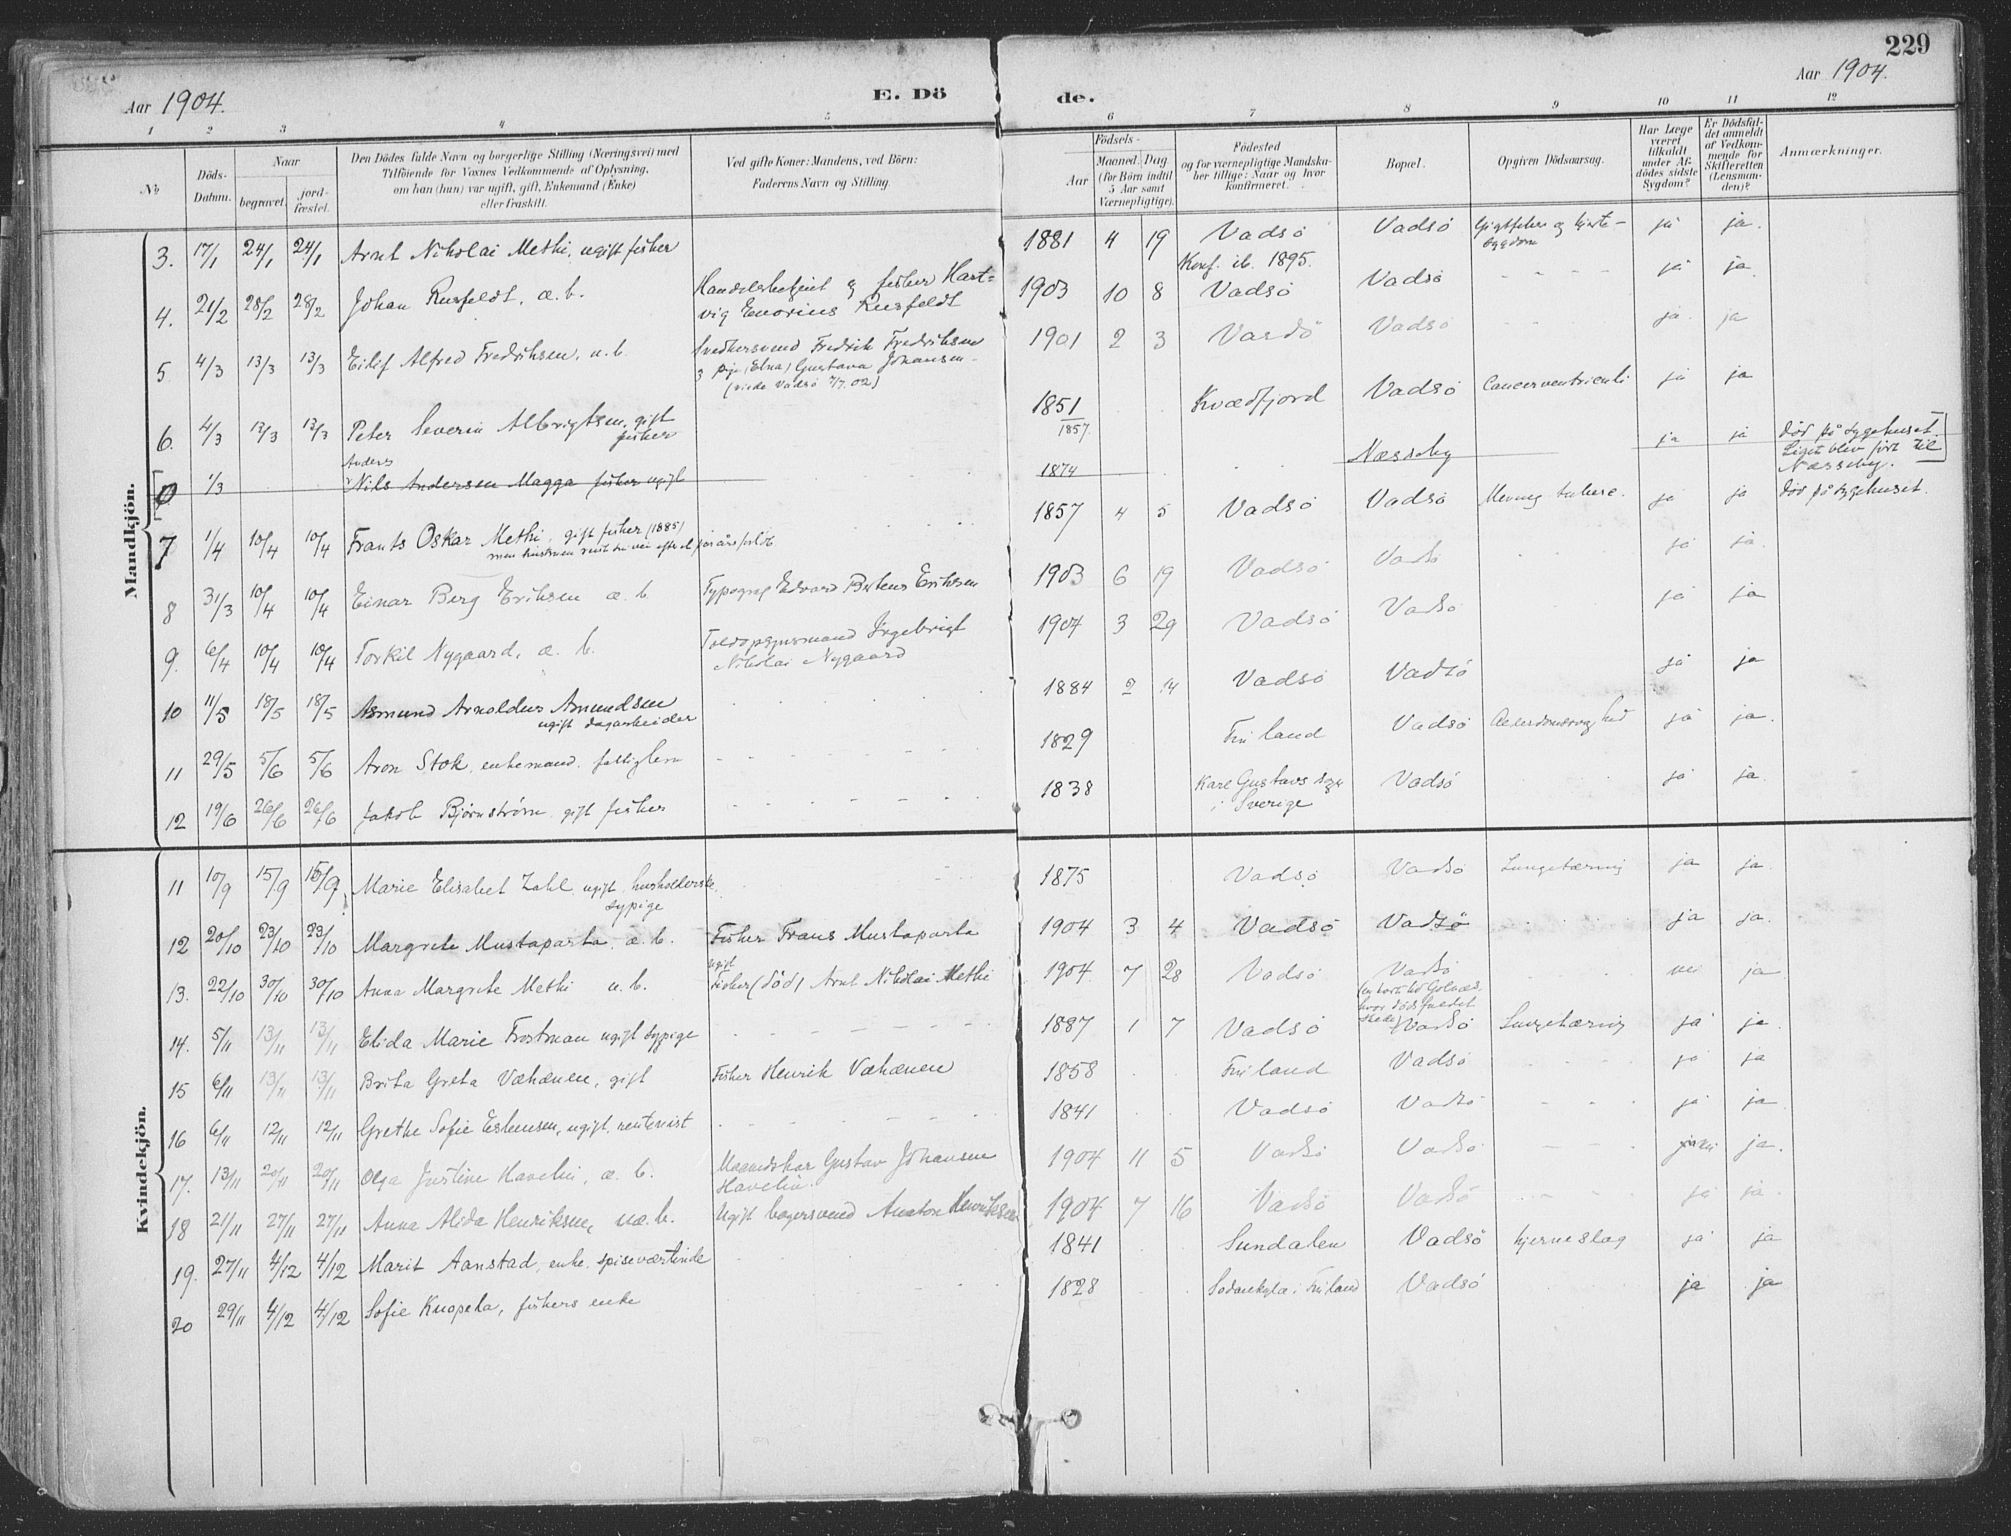 229
Aar 1904. E. Dö de. Aar 1904.
1 2 3 4 5 6 7 8 9 10 11 12
№
Döds-Datum.
Naar
begravet.
jord-fæstet.
Den Dödes fulde Navn og borgerlige Stilling (Næringsvei) med
Tilföiende for Voxnes Vedkommende af Oplysning,
om han (hun) var ugift, gift, Enkemand (Enke)
eller fraskilt.
Ved gifte Koner: Mandens, ved Börn:
Faderens Navn og Stilling.
Födsels-
Aar
Maaned. Dag
(for Börn indtil
5 Aar samt
Værnepligtige).
Födested
og for værnepligtige Mandska-
ber tillige: Naar og hvor
konfirmeret.
Bopæl.
Opgiven Dödsaarsag.
Har Læge
været
tilkaldt
under Af-
dödes sidste
Sygdom?
Er Dödsfal-
det anmeldt
af Vedkom-
mende for
Skifteretten
(Lensman-
den)?
Anmærkninger.
Mandkjön.
3. 17/1 24/1 24/1 Arnt Nikolai Methi, ugift fisker 1881 4 19 Vadsö Vadsö Gigtfeber og hjerte- ja ja.
Konf. ib. 1895. sygdom
4. 21/2 28/2 28/2 Johan Rusfeldt, æ. b. Handelsbetjent og fisker Hart- 1903 10 8 Vadsö Vadsö - - - - ja ja.
vig Enorius Rusfeldt
5. 4/3 13/3 13/3 Eilif Alfred Fredriksen, u. b. Snedkersvend Fredrik Fredriksen 1901 2 3 Vardö Vadsö - - ja. ja
3 pige (Elna) Gustava Johansen.
(viede Vadsö 7/7. 02)
6. 4/3 13/3 13/3 Peter Severin Albrigtsen, gift 1851 Kvædfjord Vadsö Cancer ventriculi ja ja
fisker
Anders
0 1/3 Nils Andersen Magga fisker ugift 1857. 1874 Næsseby ja ja död på sygehuset.
Liget blev fört til
Næsseby.
7 1/4 10/4 10/4 Frants Oskar Methi, gift fisker (1885) 1857 4 5 Vadsö Vadsö Mening. tuberc. ja ja död på sygehuset.
8 31/3 10/4 10/4 Einar Berg Eriksen æ. b. Typograf Edvard Eriksen 1903 6 19 Vadsö Vadsö ja ja.
9. 6/4 10/4 10/4 Torkil Nygaard, æ. b. Toldopsynsmand Ingebrigt 1904 3 29 Vadsö Vadsö ja ja
Nikolai Nygaard
10 11/5 18/5 18/5 Asmund Arnoldus Amundsen 1884 2 14 Vadsö Vadsö ja ja
ugift dagarbeider
11 29/5 5/6 5/6 Aron Stok, enkemand. fattiglem 1829 Finland Vadsö Alderdomssvaghed ja ja.
12 19/6 26/6 26/6 Jakob Bjørnstrøm, gift fisker 1838 Karl Gustavs sogn Vadsö ja ja.
i Sverige
Kvindekjön.
11 10/9 15/9 15/9 Marie Elisabet Zahl ugift husholderske 1875 Vadsö Vadsö Lungetæring ja ja
sypige
12 20/10 23/10 23/10 Margrete Mustaparta, æ. b. Fisker Frans Mustaparta 1904 3 4 Vadsö Vadsö ja ja.
ugift
13. 22/10 30/10 30/10 Anna Margrete Methi u. b. Fisker (död) Arnt Nikolai Methi 1904 7 28 Vadsö Vadsö nei ja
14. 5/11 13/11 13/11 Elida Marie Frostman ugift sypige 1887 1 7 Vadsö Vadsö Lungetæring ja ja.
15 6/11 13/11 13/11 Brita Greta Væhænen, gift Fisker Henrik Væhænen 1858 Finland Vadsö ja ja
16 6/11 12/11 12/11 Grethe Sofie Esbensen, ugift, rentenist 1841 Vadsö Vadsö ja ja.
17. 13/11 20/11 20/11 Olga Justine Havelin, æ. b. Gustav Johansen 1904 11 5 Vadsö Vadsö nei ja.
Havelin.
18 21/11 27/11 27/11 Anna Alida Henriksen, uæ. b. Ugift bagersvend Anaton Henriksen 1904 7 16 Vadsö Vadsö ja ja.
19. 27/11 4/12 4/12 Marit Aanstad, enke, spiseværtinde 1841 Sundalen Vadsö hjerneslag ja ja
20 29/11 4/12 4/12 Sofie Knopela, fiskers enke 1828 Sodankylæ i Finland Vadsö ja ja